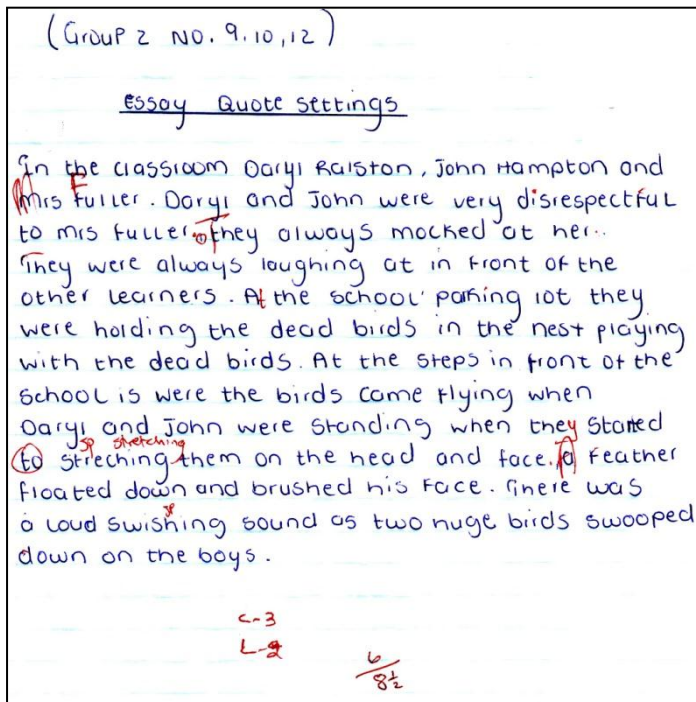 (Group 2 NO. 9,10,12)
essay Quote settings
In the classroom Daryl Ralston, John Hampton and
Mrs Fuller. Daryl and John were very disrespectful
to mrs fuller. They always mocked at her..
They were always laughing at in front of the
other learners. At the school parking lot they
were holding the dead birds in the nest playing
with the dead birds. At the steps in front of the
school is were the birds came flying when
Daryl and John were standing when they started
sp stretching
to streching them on the head and face. A feather
floated down and brushed his face. There was
sp
a loud swishing sound as two huge birds swooped
down on the boys.
C-3
L-2
6
8½